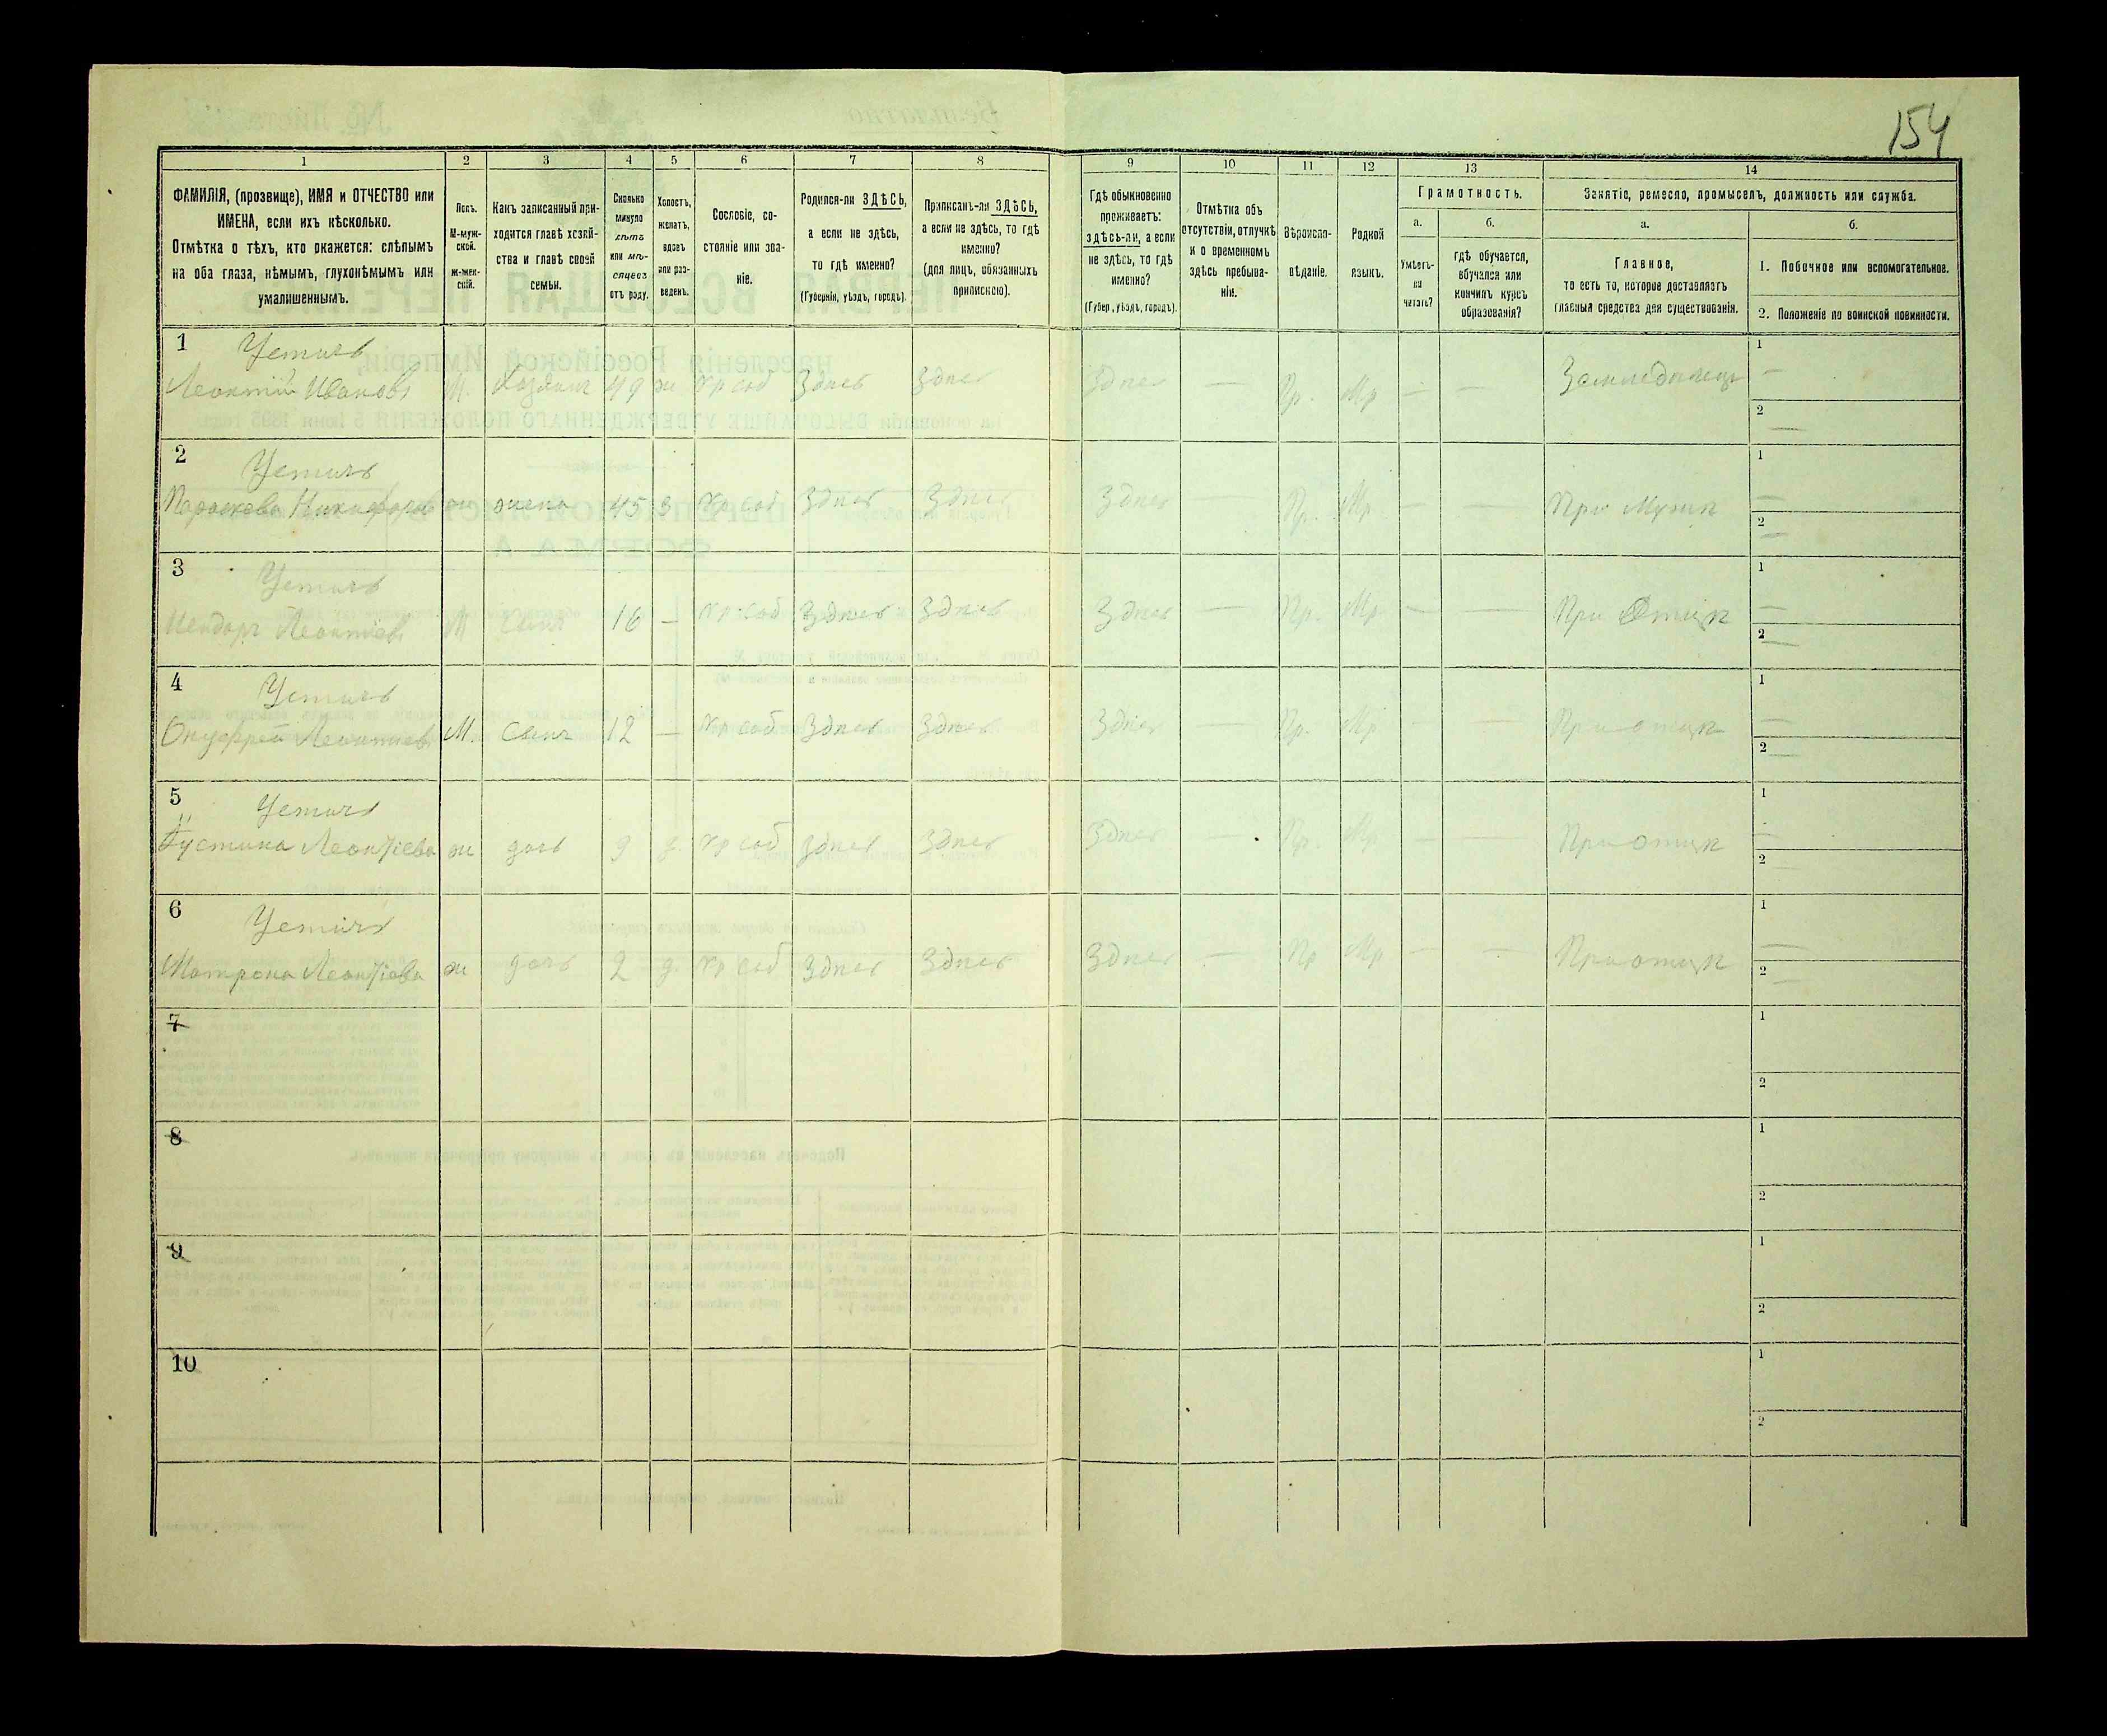 154
1
2
3
4
5
6
7
8
9
10
11
12
13
14
ФАМИЛІЯ, (прозвище), ИМЯ и ОТЧЕСТВО или
ИМЕНА, если ихъ нѣсколько.
Отмѣтка о тѣхъ, кто окажется: слѣпымъ
на оба глаза, нѣмымъ, глухонѣмымъ или
умалишеннымъ.
Полъ.
М-муж-
ской.
Ж-жен-
скій.
Какъ записанный при-
ходится главѣ хозяй-
ства и главѣ своей
семьи.
Сколько
минуло
лѣтъ
или мѣ-
сяцевъ
отъ роду.
Холостъ,
женатъ,
вдовъ
или раз-
веденъ.
Сословіе, со-
стояніе или зва-
ніе.
Родился-ли ЗДѢСЬ,
а если не здѣсь,
то гдѣ именно?
(Губернія, уѣздъ, городъ).
Приписанъ-ли ЗДѢСЬ,
а если не здѣсь, то гдѣ
именно?
(для лицъ, обязанныхъ
припискою).
Гдѣ обыкновенно
проживаетъ:
здѣсь-ли, а если
не здѣсь, то гдѣ
именно?
(Губер., уѣздъ, городъ).
Отмѣтка объ
отсутствіи, отлучкѣ
и о временномъ
здѣсь пребыва-
ніи.
Вѣроиспо-
вѣданіе.
Родной
языкъ.
Грамотность.
а.
Умѣетъ-
ли
читать?
б.
гдѣ обучается,
обучался или
кончилъ курсъ
образованія?
Занятіе, ремесло, промыселъ, должность или служба.
а.
Главное,
то есть то, которое доставляетъ
главныя средства для существованія.
б.
1. Побочное или вспомогательное.
2. Положеніе по воинской повинности.
1
Леонтій Ивановъ М. 49 ж Кр соб Здѣсь Здѣсь Здѣсь — Пр. Мр — — Земледѣлецъ
1 —
2 —
2
Параскева Никифоров ж жена 45 З Кр соб Здѣсь Здѣсь Здѣсь — Пр. Мр — — При Мужѣ
1 —
2 —
3
Леонтіевъ М Сынъ 16 — Кр соб Здѣсь Здѣсь Здѣсь — Пр. Мр — — При Отцѣ
1 —
2 —
4
Онуфрей Леонтіевъ М. Сынъ 12 — Кр соб Здѣсь Здѣсь Здѣсь — Пр. Мр — — При отцѣ
1 —
2 —
5
Іустина Леонтіева ж дочь 9 д. Кр соб Здѣсь Здѣсь Здѣсь — Пр. Мр — — При отцѣ
1 —
2 —
6
Матрона Леонтіева ж дочь 2 д. Кр соб Здѣсь Здѣсь Здѣсь — Пр Мр — — При отцѣ
1 —
2 —
7
1
2
8
1
2
9
1
2
10
1
2